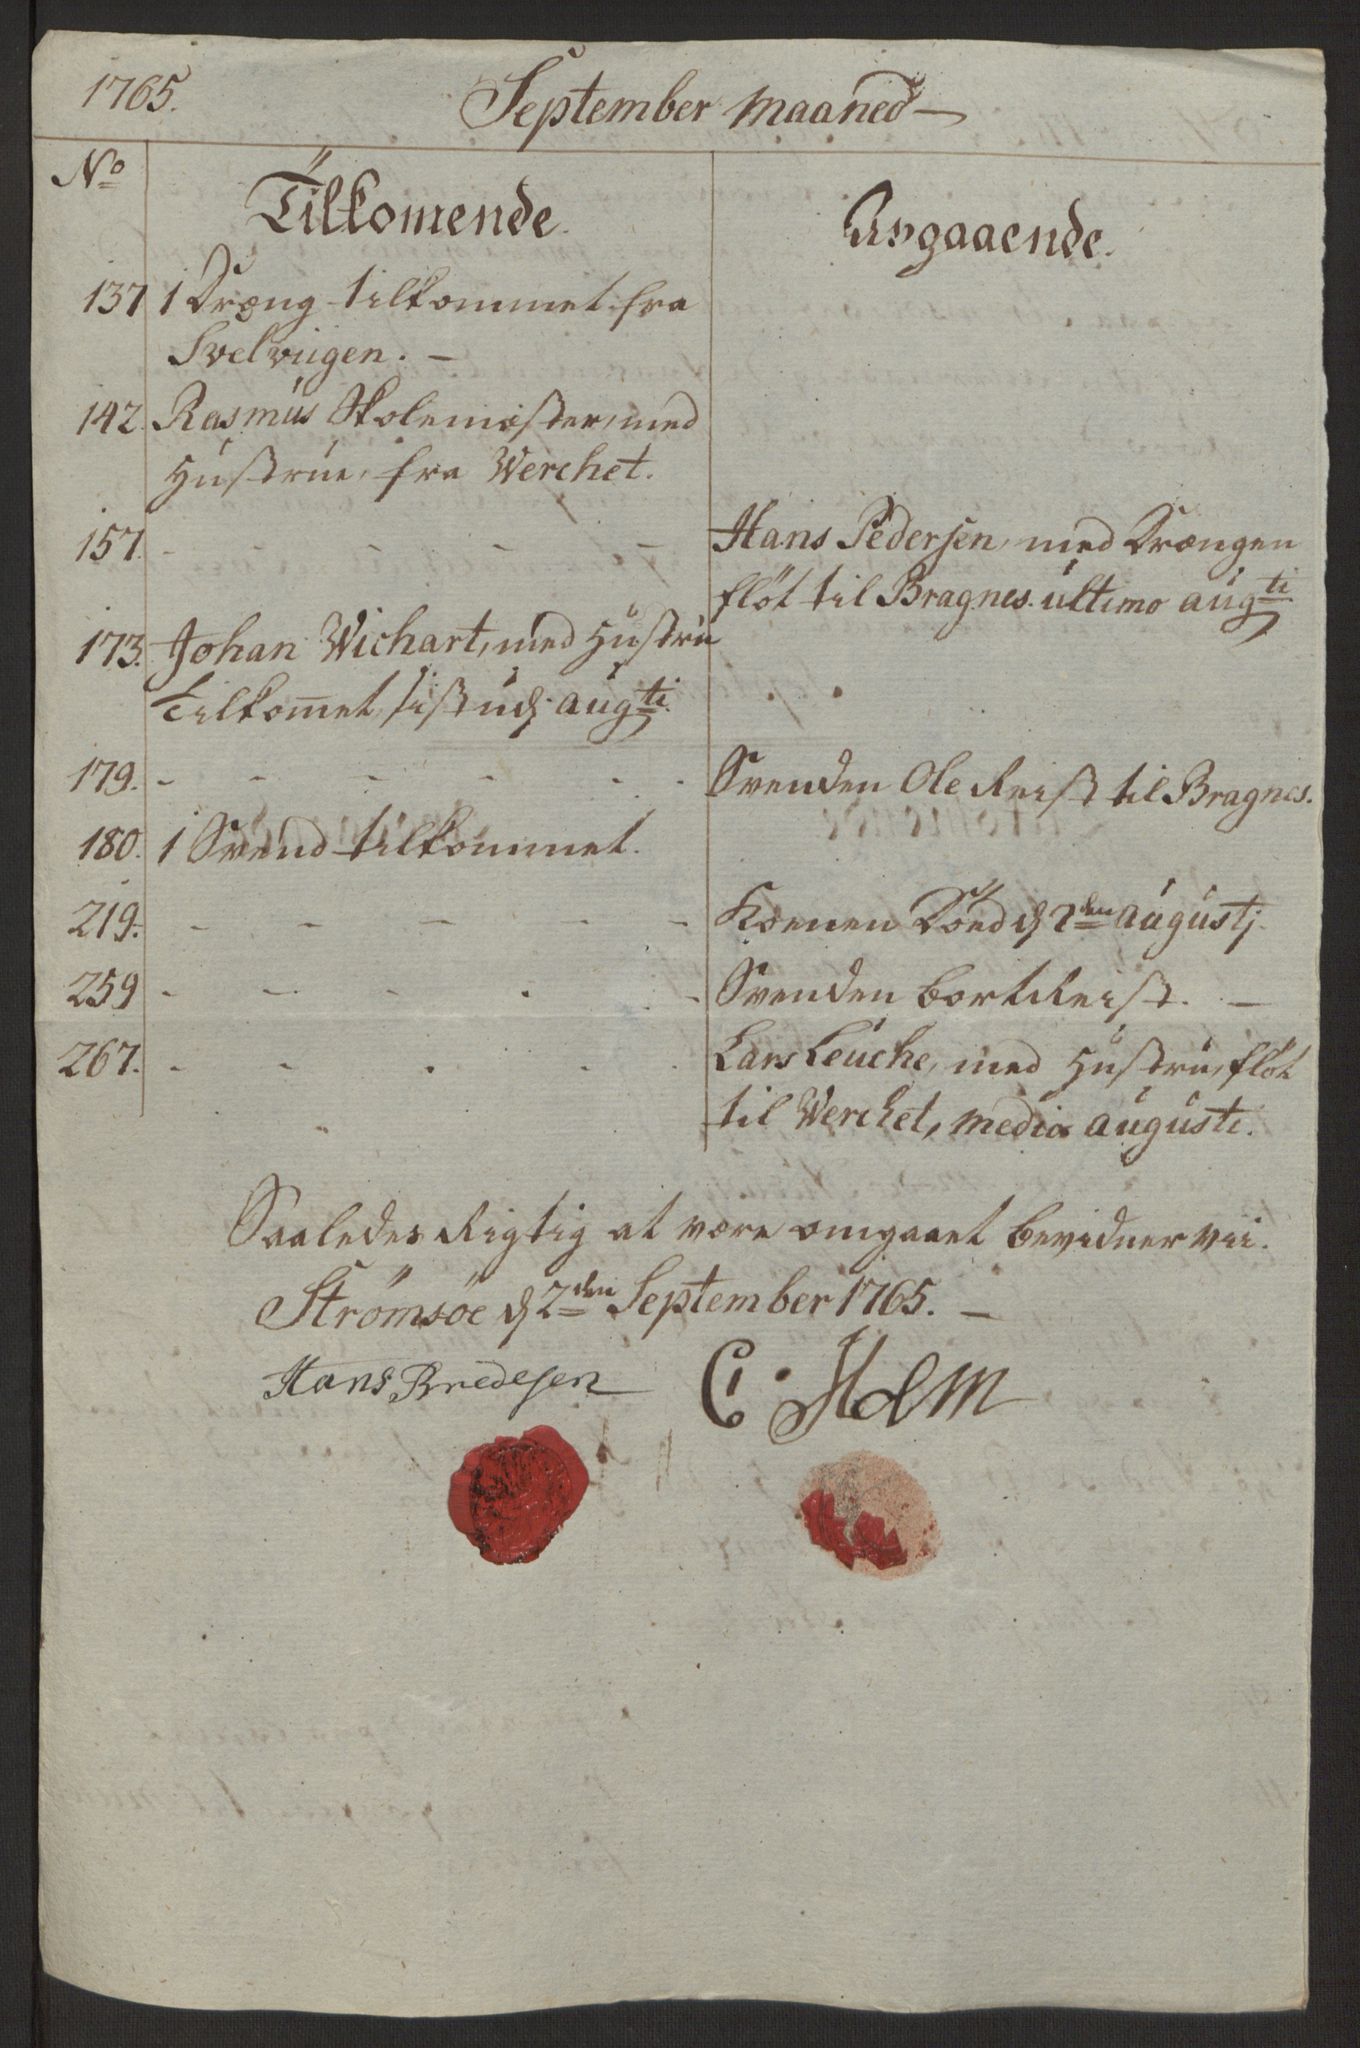 1765.
September Maaned
No
Tilkomende.
Avgaaende.
137 1 Dræng tilkommet fra
Svelviigen.
142. Rasmus Skolemæster, med
Hustrue, fra Werchet.
157. - - - - - Hans Pedersen, med Drængen
fløt til Bragnes. ultimo augti
173. Johan Wichart, med Hustru
Tilkomet, sistudj. augti.
179. - - - - - - Svenden Ole Reist til Bragnes.
180. 1 Svend tilkommet.
219. - - - - - Konen Död d 2den augustj.
259 - - - - - - Svenden bortReist.
267. - - - - - Lars Leuche, med Hustru, fløt
til Werchet, medio augusti.
Saaledes Rigtig at være omgaaet bevidner vii.
Strömsöe d 2den September 1765.
Hans Bredesen C. Holm